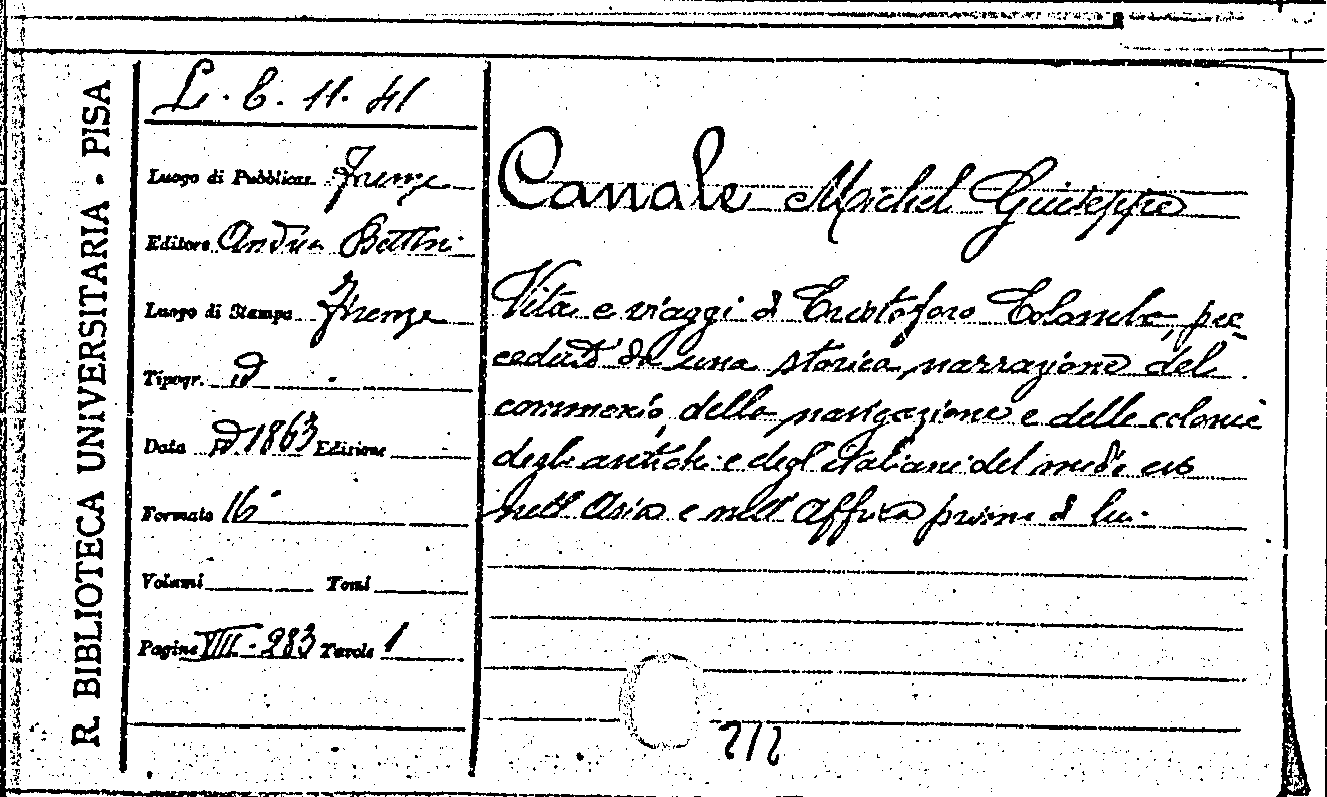 R. BIBLIOTECA UNIVERSITARIA - PISA
L. E. 11. 41
Luogo di Pubblicaz. Firenze
Editore Andrea Bettini
Luogo di Stampa Firenze
Tipogr. id
Data id 1863 Edizione
Formato 16°
Volumi Tomi
Pagine VIII - 283 Tavole 1
Canale Michel Giuseppe
Vita e viaggi di Cristoforo Colombo, pre
ceduti da una storica narrazione del
commercio, della navigazione e delle colonie
degli antichi e degl'italiani del medio evo
nell'Asia e nell'Affrica prima di lui.
212